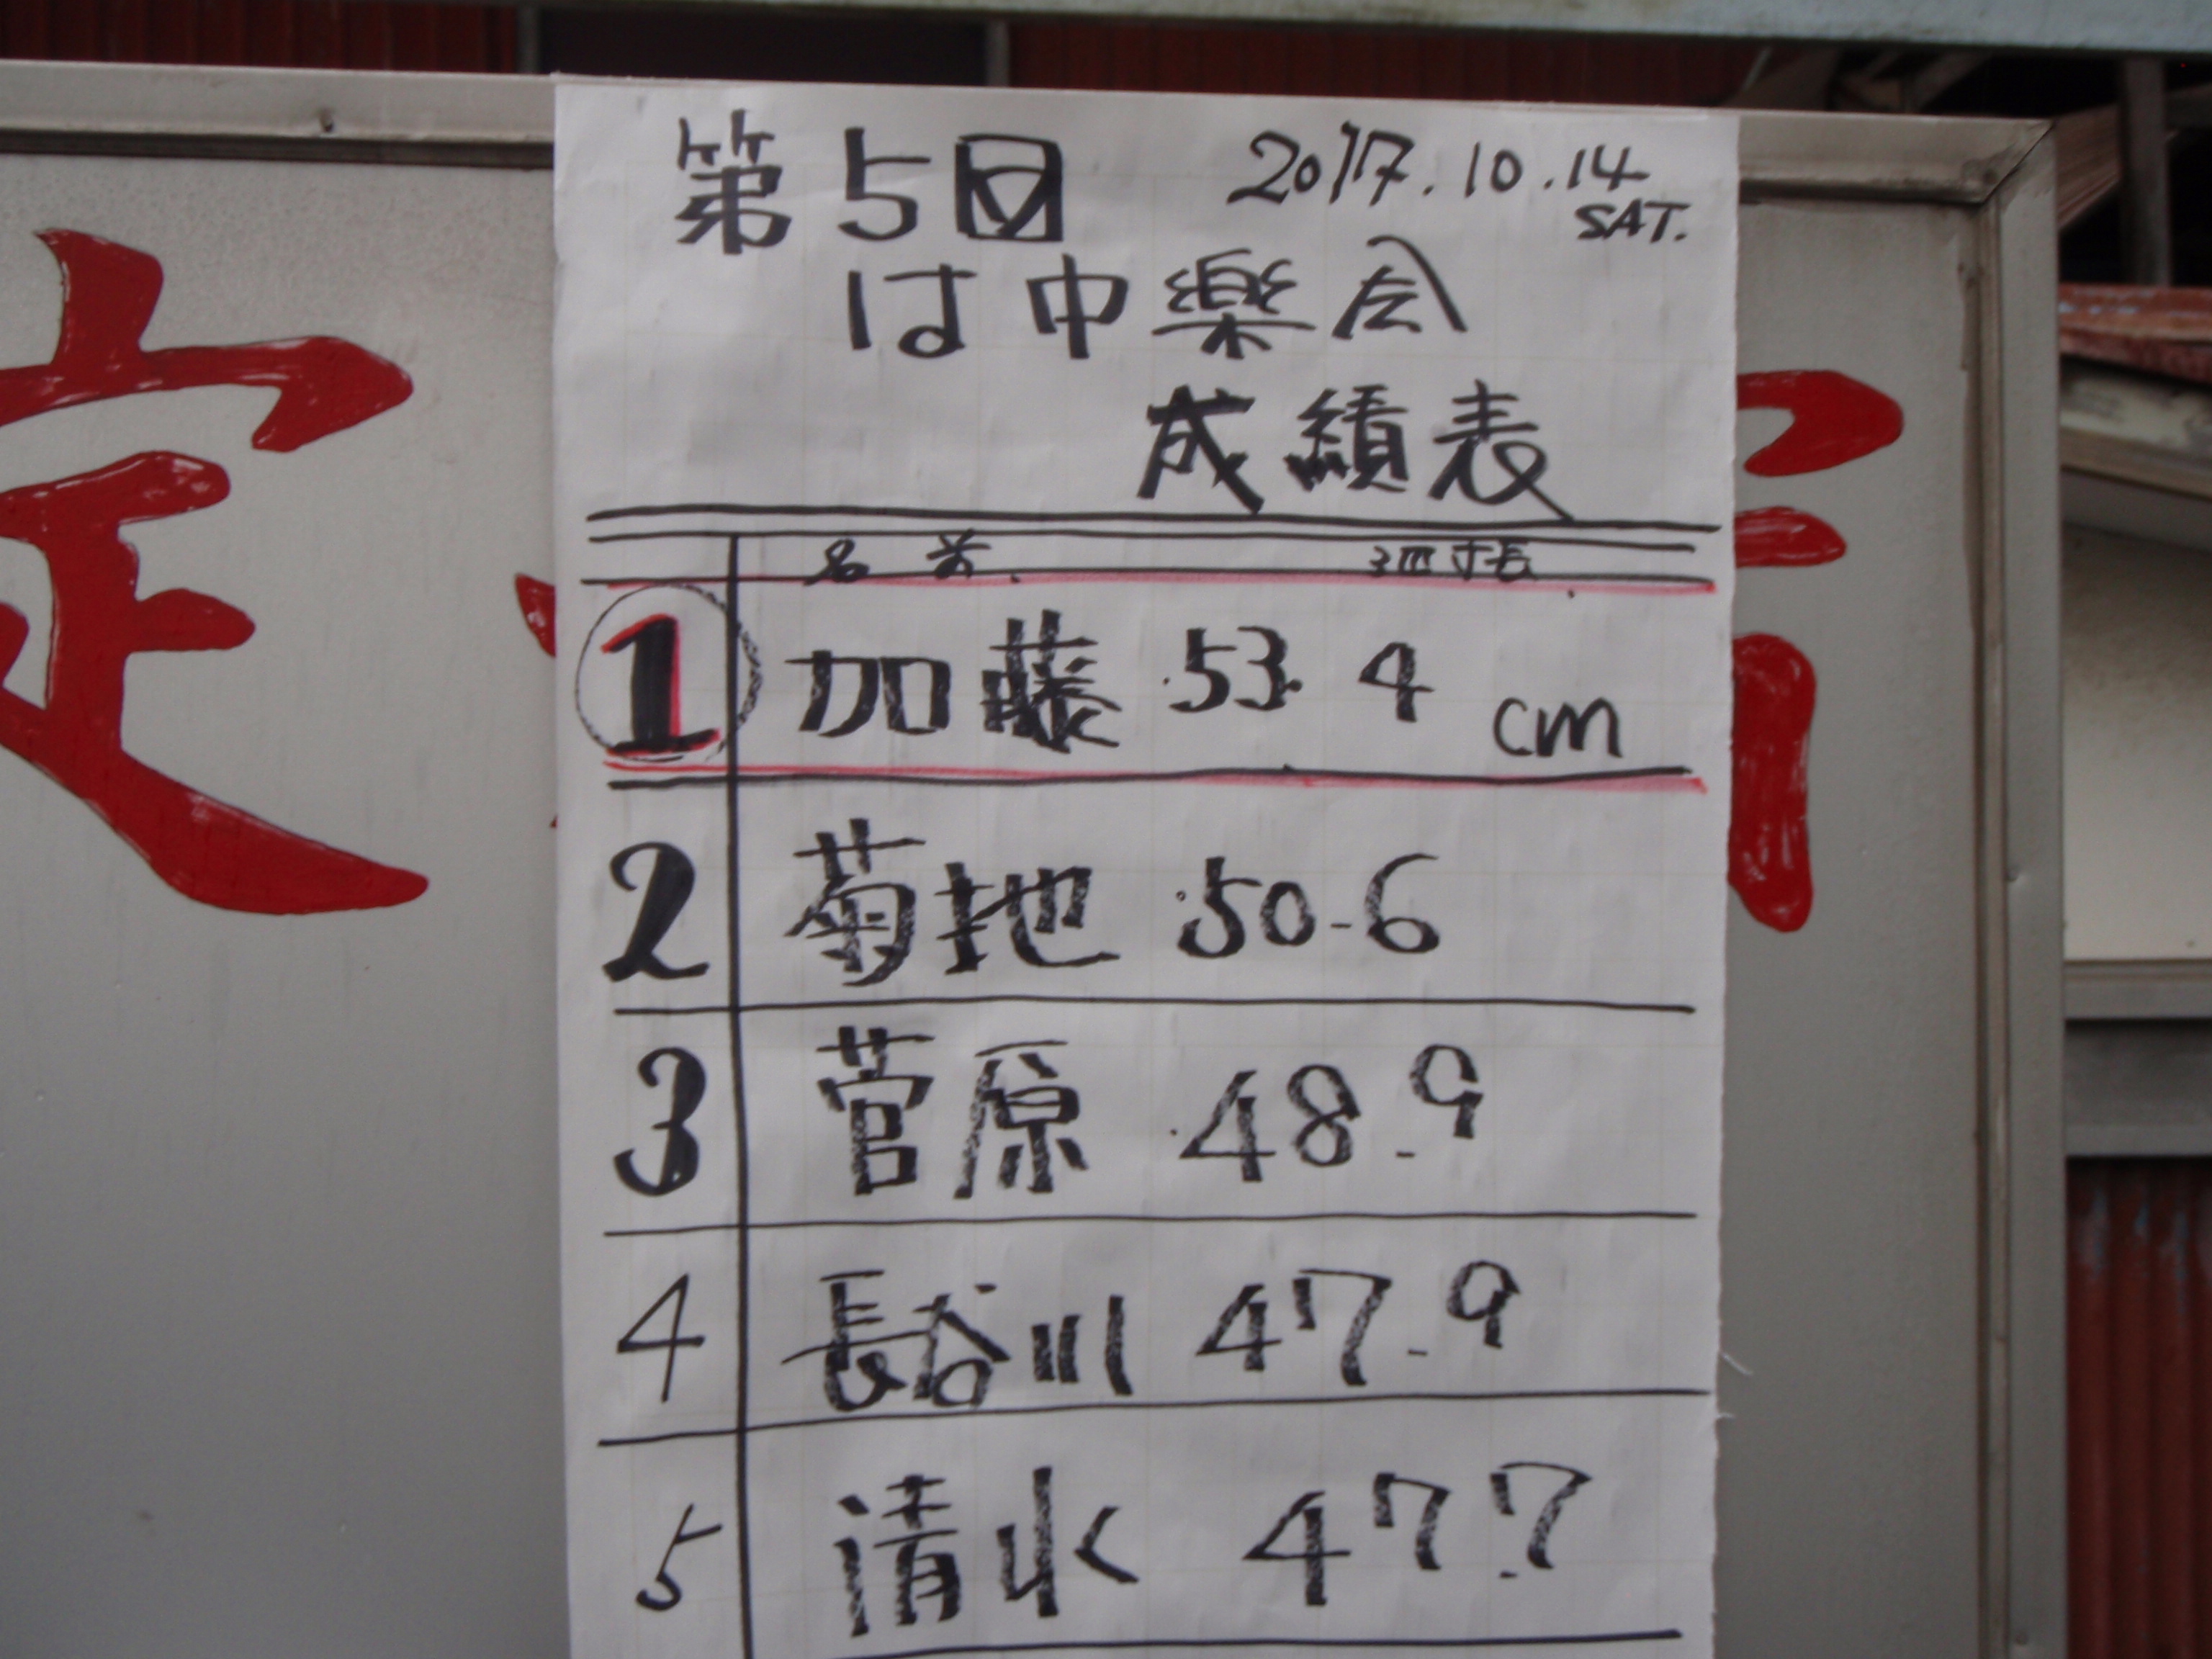 定
第5回 2017.10.14
SAT.
は中楽会
成績表
名前 3匹寸長
1 加藤 53.4 cm
2 菊地 50.6
3 菅原 48.9
4 長谷川 47.9
5 清水 47.7